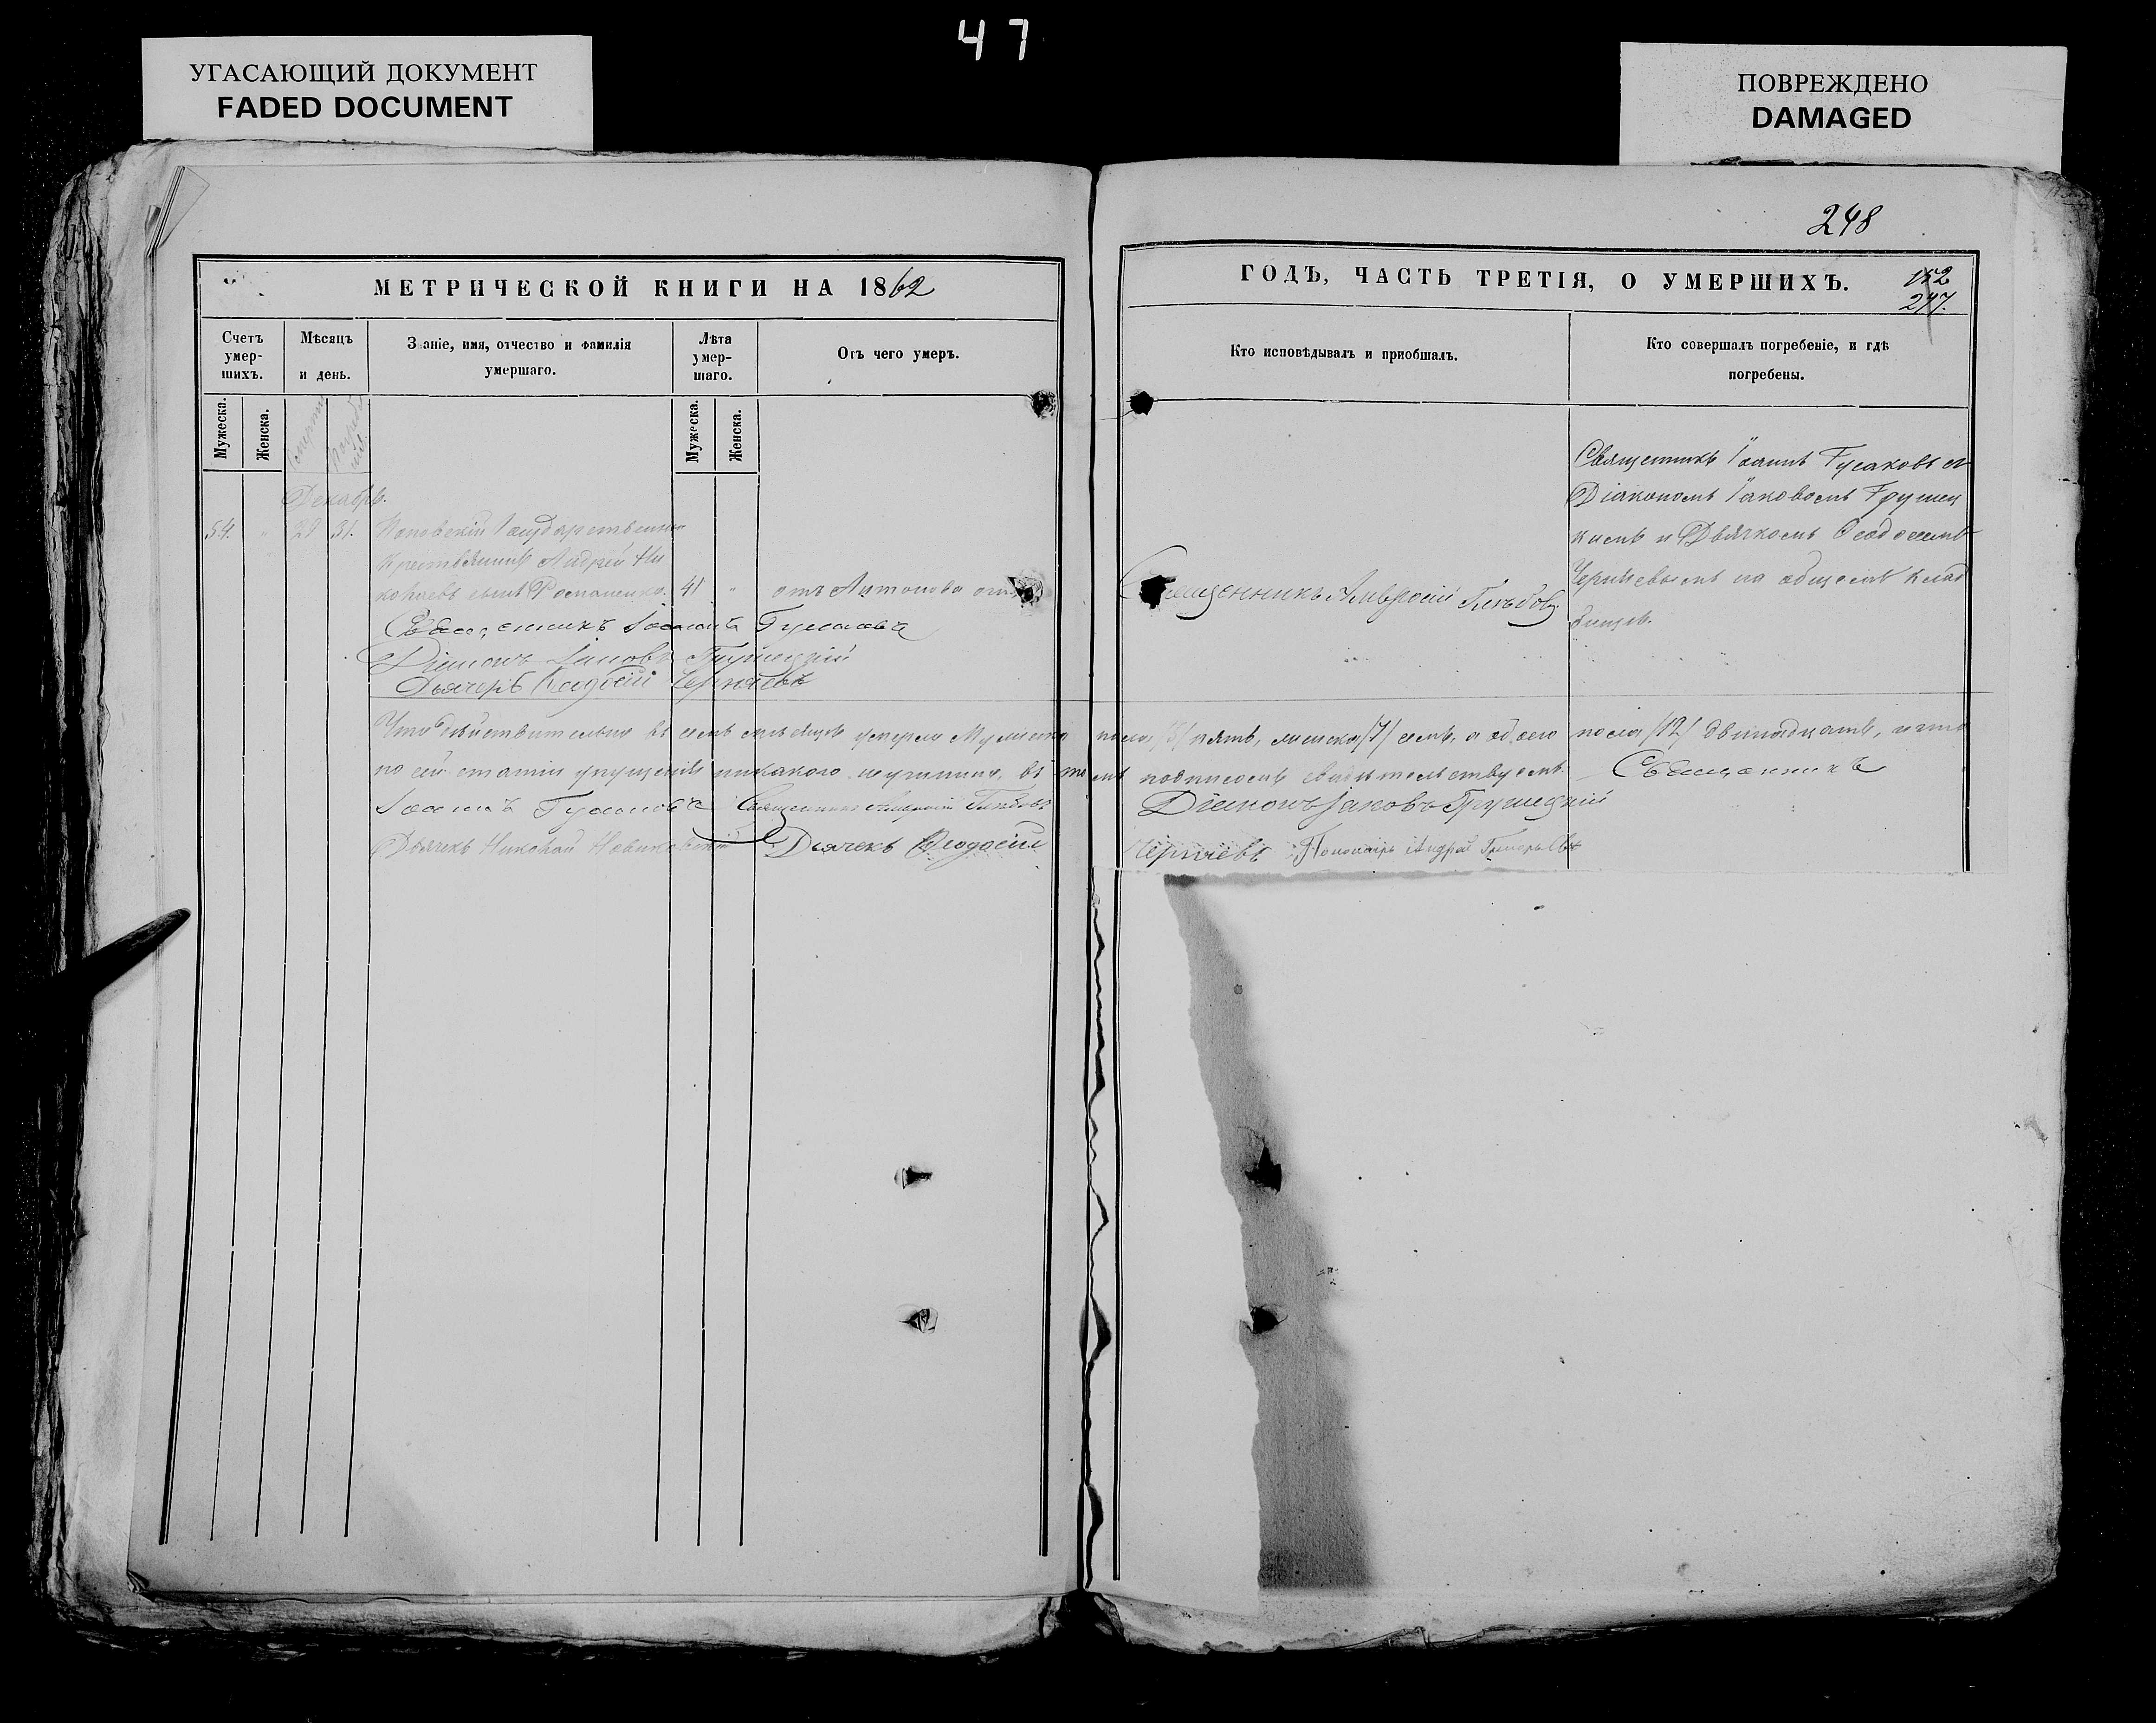 47
УГАСАЮЩИЙ ДОКУМЕНТ
FADED DOCUMENT
ПОВРЕЖДЕНО
DAMAGED
248
МЕТРИЧЕСКОЙ КНИГИ НА 1862
ГОДЪ, ЧАСТЬ ТРЕТІЯ, О УМЕРШИХЪ.
152
247.
Счетъ умер-шихъ.
Мѣсяцъ и день.
Званіе, имя, отчество и фамилія
умершаго.
Лѣта умер-шаго.
Отъ чего умеръ.
Кто исповѣдывалъ и пріобщалъ.
Кто совершалъ погребеніе, и гдѣ
погребены.
Мужеска.
Женска.
Мужеска.
Женска.
Декабрь.
54. " 29 31.
крестьянинъ Андрей Ни
колаевъ сынъ Романенко. 41 " отъ Антонова огня
Священникъ Амвросій Глѣбовъ
Священникъ Іоаннъ Гусаковъ съ
Діакономъ Іаковомъ Грушец
кимъ и Дьячкомъ Ѳеодосіемъ
Черняевымъ на общемъ клад
бищѣ.
Священникъ Іоаннъ Гусаковъ
Діаконъ Іаковъ Грушецкій
Дьячекъ Ѳеодосій Черняевъ
Что дѣйствительно въ семъ мѣсяцѣ умерло Мужеска пола /5/ пять, женска /7/ семь, а обоего пола /12/ двѣнадцать, и что
по сей статіи упущенія никакого не учинено, въ томъ подписомъ свидѣтельствуемъ. Священникъ
Іоаннъ Гусаковъ Священникъ Амвросій Глѣбовъ Діаконъ Іаковъ Грушецкій
Дьячекъ Николай Новиковскій Дьячекъ Ѳеодосій Черняевъ Пономарь Андрей